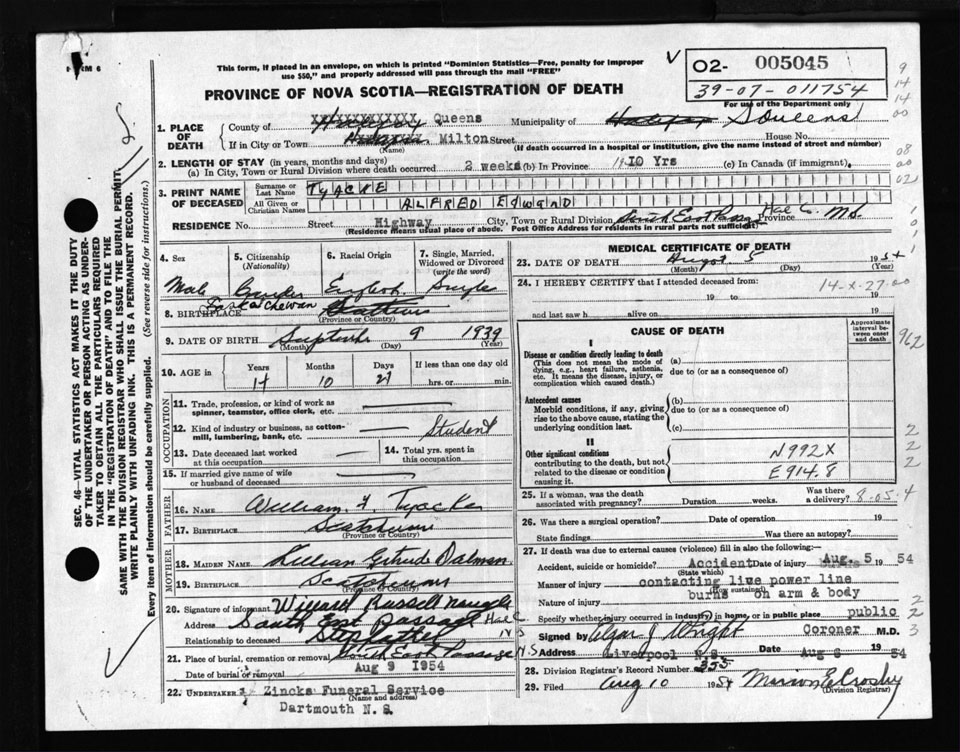 FORM 6
This form, if placed in an envelope, on which is printed "Dominion Statistics—Free, penalty for improper
use $50," and properly addressed will pass through the mail "FREE"
PROVINCE OF NOVA SCOTIA—REGISTRATION OF DEATH
O2- 005045
39-07-011754
For use of the Department only
1. PLACE OF DEATH
County of Queens Municipality of Queens
If in City or Town Milton Street House No.
(Name) (If death occurred in a hospital or institution, give the name instead of street and number)
2. LENGTH OF STAY (in years, months and days)
(a) In City, Town or Rural Division where death occurred 2 weeks (b) In Province 10 Yrs (c) In Canada (if immigrant).
3. PRINT NAME OF DECEASED
Surname or Last Name TYACKE
All Given or Christian Names ALFRED EDWARD
RESIDENCE No. Street Highway City, Town or Rural Division South East Passage Hal Co. Province N.S.
(Residence means usual place of abode. Post Office Address for residents in rural parts not sufficient)
4. Sex
Male
5. Citizenship (Nationality)
6. Racial Origin
English
7. Single, Married, Widowed or Divorced (write the word)
Single
8. BIRTHPLACE Saskatchewan
(Province or Country)
9. DATE OF BIRTH September 9 1939
(Month) (Day) (Year)
10. AGE in Years Months Days If less than one day old
14 10 27 hrs. or min.
OCCUPATION
11. Trade, profession, or kind of work as spinner, teamster, office clerk, etc.
12. Kind of industry or business, as cotton-mill, lumbering, bank, etc. Student
13. Date deceased last worked at this occupation
14. Total yrs. spent in this occupation
15. If married give name of wife or husband of deceased
FATHER
16. NAME William F. Tyacke
17. BIRTHPLACE
(Province or Country)
MOTHER
18. MAIDEN NAME Lillian Gertrude Dalman
19. BIRTHPLACE
(Province or Country)
20. Signature of informant Willard Russell Naugle
Address South East Passage Hal C N S
Relationship to deceased Stepfather
21. Place of burial, cremation or removal South East Passage N.S
Date of burial or removal Aug 9 1954
22. UNDERTAKER Zincks Funeral Service
(Name and address)
Dartmouth N.S.
MEDICAL CERTIFICATE OF DEATH
23. DATE OF DEATH August 5 1954
(Month) (Day) (Year)
24. I HEREBY CERTIFY that I attended deceased from: 14-x-27-00
19 to 19
and last saw h alive on 19
CAUSE OF DEATH
Approximate interval between onset and death
I
Disease or condition directly leading to death (a)
(This does not mean the mode of dying, e.g., heart failure, asthenia, etc. It means the disease, injury, or complication which caused death.)
due to (or as a consequence of)
Antecedent causes (b)
Morbid conditions, if any, giving rise to the above cause, stating the underlying condition last.
due to (or as a consequence of)
(c)
II
Other significant conditions
contributing to the death, but not related to the disease or condition causing it.
N992X
E914.8
25. If a woman, was the death associated with pregnancy? Duration weeks. Was there a delivery? 8-05-4
26. Was there a surgical operation? Date of operation 19
State findings Was there an autopsy?
27. If death was due to external causes (violence) fill in also the following:—
Accident, suicide or homicide? Accident Date of injury Aug. 5 19 54
(State which)
Manner of injury contacting live power line
(How sustained)
Nature of injury burns on arm & body
Specify whether injury occurred in industry, in home, or in public place public
Signed by Elgar J Wright Coroner M.D.
Address Liverpool N.S. Date Aug 6 19 54
28. Division Registrar's Record Number 355
29. Filed Aug 10 1954 Marion E Crosby
(Division Registrar)
SEC. 46—VITAL STATISTICS ACT MAKES IT THE DUTY
OF THE UNDERTAKER OR PERSON ACTING AS UNDER-
TAKER TO OBTAIN ALL THE PARTICULARS REQUIRED
IN THE "REGISTRATION OF DEATH" AND TO FILE THE
SAME WITH THE DIVISION REGISTRAR WHO SHALL ISSUE THE BURIAL PERMIT.
WRITE PLAINLY WITH UNFADING INK. THIS IS A PERMANENT RECORD.
Every item of information should be carefully supplied. (See reverse side for instructions.)
9
14
14
00
08
00
02
1
962
2
2
2
2
2
3